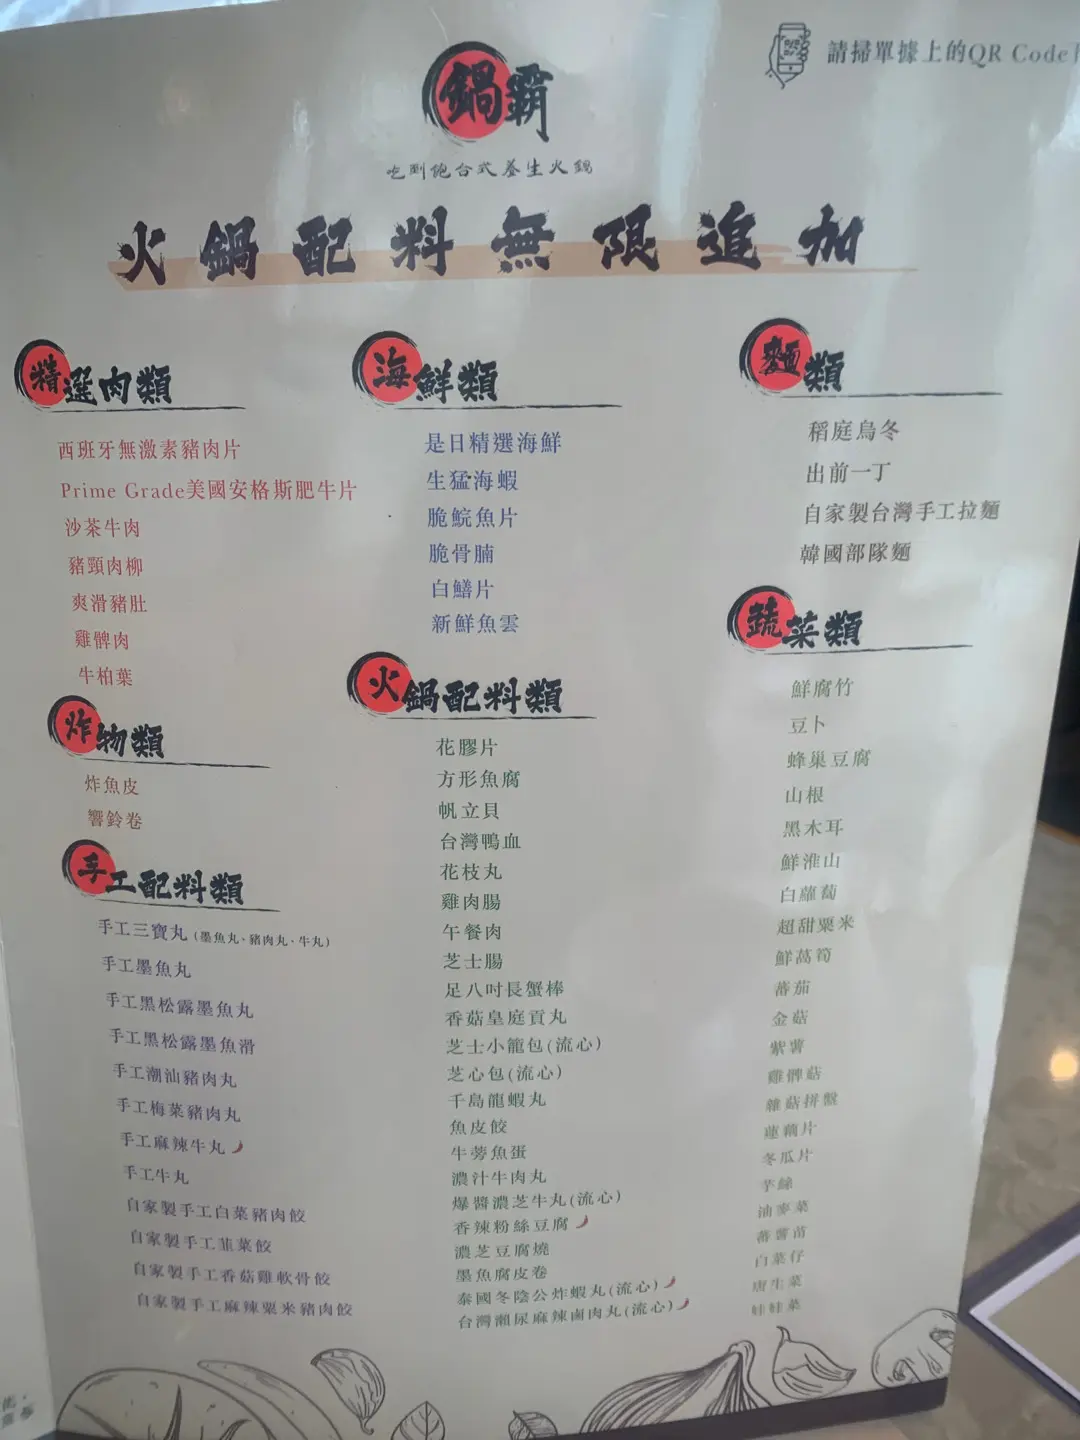 請掃單據上的QR Code
鍋霸
吃到飽台式養生火鍋
火鍋配料無限追加
精選肉類
西班牙無激素豬肉片
Prime Grade美國安格斯肥牛片
沙茶牛肉
豬頸肉柳
爽滑豬肚
雞髀肉
牛柏葉
炸物類
炸魚皮
響鈴卷
手工配料類
手工三寶丸 (墨魚丸、豬肉丸、牛丸)
手工墨魚丸
手工黑松露墨魚丸
手工黑松露墨魚滑
手工潮汕豬肉丸
手工梅菜豬肉丸
手工麻辣牛丸
手工牛丸
自家製手工白菜豬肉餃
自家製手工韮菜餃
自家製手工香菇雞軟骨餃
自家製手工麻辣粟米豬肉餃
海鮮類
是日精選海鮮
生猛海蝦
脆鯇魚片
脆骨腩
白鱔片
新鮮魚雲
火鍋配料類
花膠片
方形魚腐
帆立貝
台灣鴨血
花枝丸
雞肉腸
午餐肉
芝士腸
足八吋長蟹棒
香菇皇庭貢丸
芝士小籠包(流心)
芝心包(流心)
千島龍蝦丸
魚皮餃
牛蒡魚蛋
濃汁牛肉丸
爆醬濃芝牛丸(流心)
香辣粉絲豆腐
濃芝豆腐燒
墨魚腐皮卷
泰國冬陰公炸蝦丸(流心)
台灣瀨尿麻辣鹵肉丸(流心)
麵類
稻庭烏冬
出前一丁
自家製台灣手工拉麵
韓國部隊麵
蔬菜類
鮮腐竹
豆卜
蜂巢豆腐
山根
黑木耳
鮮淮山
白蘿蔔
超甜粟米
鮮萵筍
蕃茄
金菇
紫薯
雞髀菇
雜菇拼盤
蓮藕片
冬瓜片
芋絲
油麥菜
蕃薯苗
白菜仔
唐生菜
娃娃菜